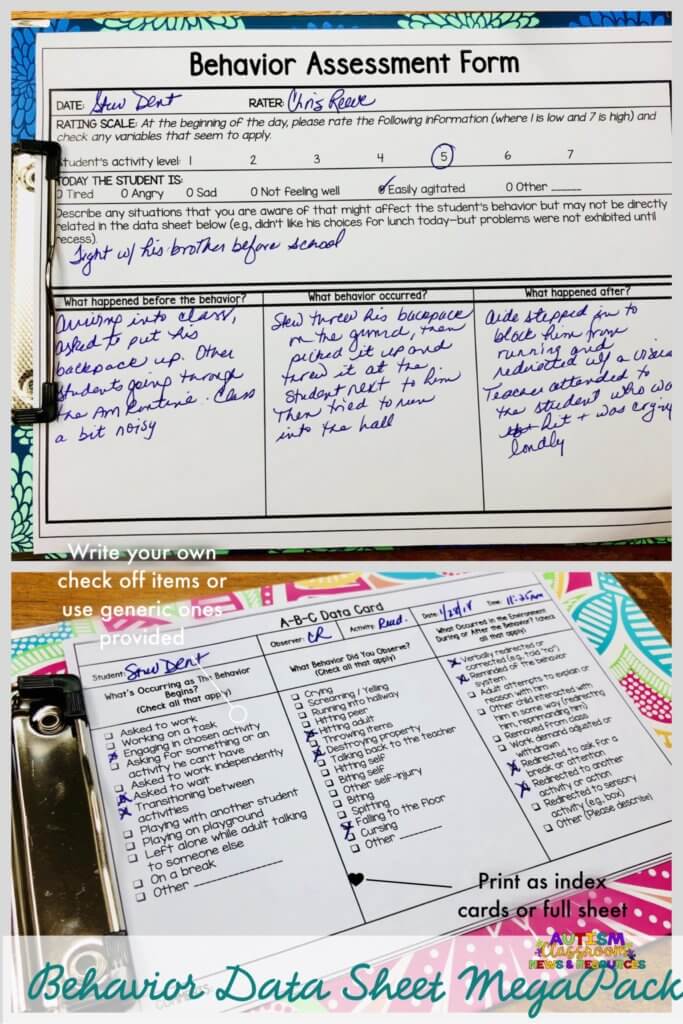 Behavior Assessment Form
DATE: Stew Dent RATER: Chris Reeve
RATING SCALE: At the beginning of the day, please rate the following information (where 1 is low and 7 is high) and
check any variables that seem to apply.
Student's activity level: 1 2 3 4 5 6 7
TODAY THE STUDENT IS:
O Tired O Angry O Sad O Not feeling well Easily agitated O Other _____
Describe any situations that you are aware of that might affect the student's behavior but may not be directly
related in the data sheet below (e.g., didn't like his choices for lunch today—but problems were not exhibited until
recess).
Fight w/ his brother before school
What happened before the behavior?
Arriving into class,
asked to put his
backpack up. Other
students going through
the AM Routine. Class
a bit noisy
What behavior occurred?
Stew threw his backpack
on the ground, then
picked it up and
threw it at the
student next to him
Then tried to run
into the hall
What happened after?
Aide stepped in to
block him from
running and
redirected w/ a
Teacher attended to
the student who
hit + was
loudly
Write your own
check off items or
use generic ones
provided
A-B-C Data Card
Student: Stew Dent
Observer: CR
Activity: Read.
Date: 1/28/18
Time:
What's Occurring as The Behavior
Begins?
(Check all that apply)
Asked to work
Working on a task
Engaging in chosen activity
Asking for something or an
activity he can't have
Asked to work independently
Asked to wait
Transitioning between
activities
Playing with another student
Playing on playground
Left alone while adult talking
to someone else
On a break
Other
What Behavior Did You Observe?
(Check all that apply)
Crying
Screaming / Yelling
Running into hallway
Hitting peer
Hitting adult
Throwing items
Destroying property
Talking back to the teacher
Hitting self
Biting self
Other self-injury
Biting
Spitting
Falling to the floor
Cursing
Other
What Occurred in the Environment
During or After the Behavior? (check
all that apply)
Verbally redirected or
corrected (e.g., told "no")
Reminded of the behavior
system
Adult attempts to explain or
reason with him
Other child interacted with
him in some way (redirecting
him, reprimanding him)
Removed from class
Work demand adjusted or
withdrawn
Redirected to ask for a
break or attention
Redirected to another
activity or action
Redirected to sensory
activity (e.g., box)
Other (Please describe)
Print as index
cards or full sheet
AUTISM
Classroom
NEWS & RESOURCES
Behavior Data Sheet MegaPack